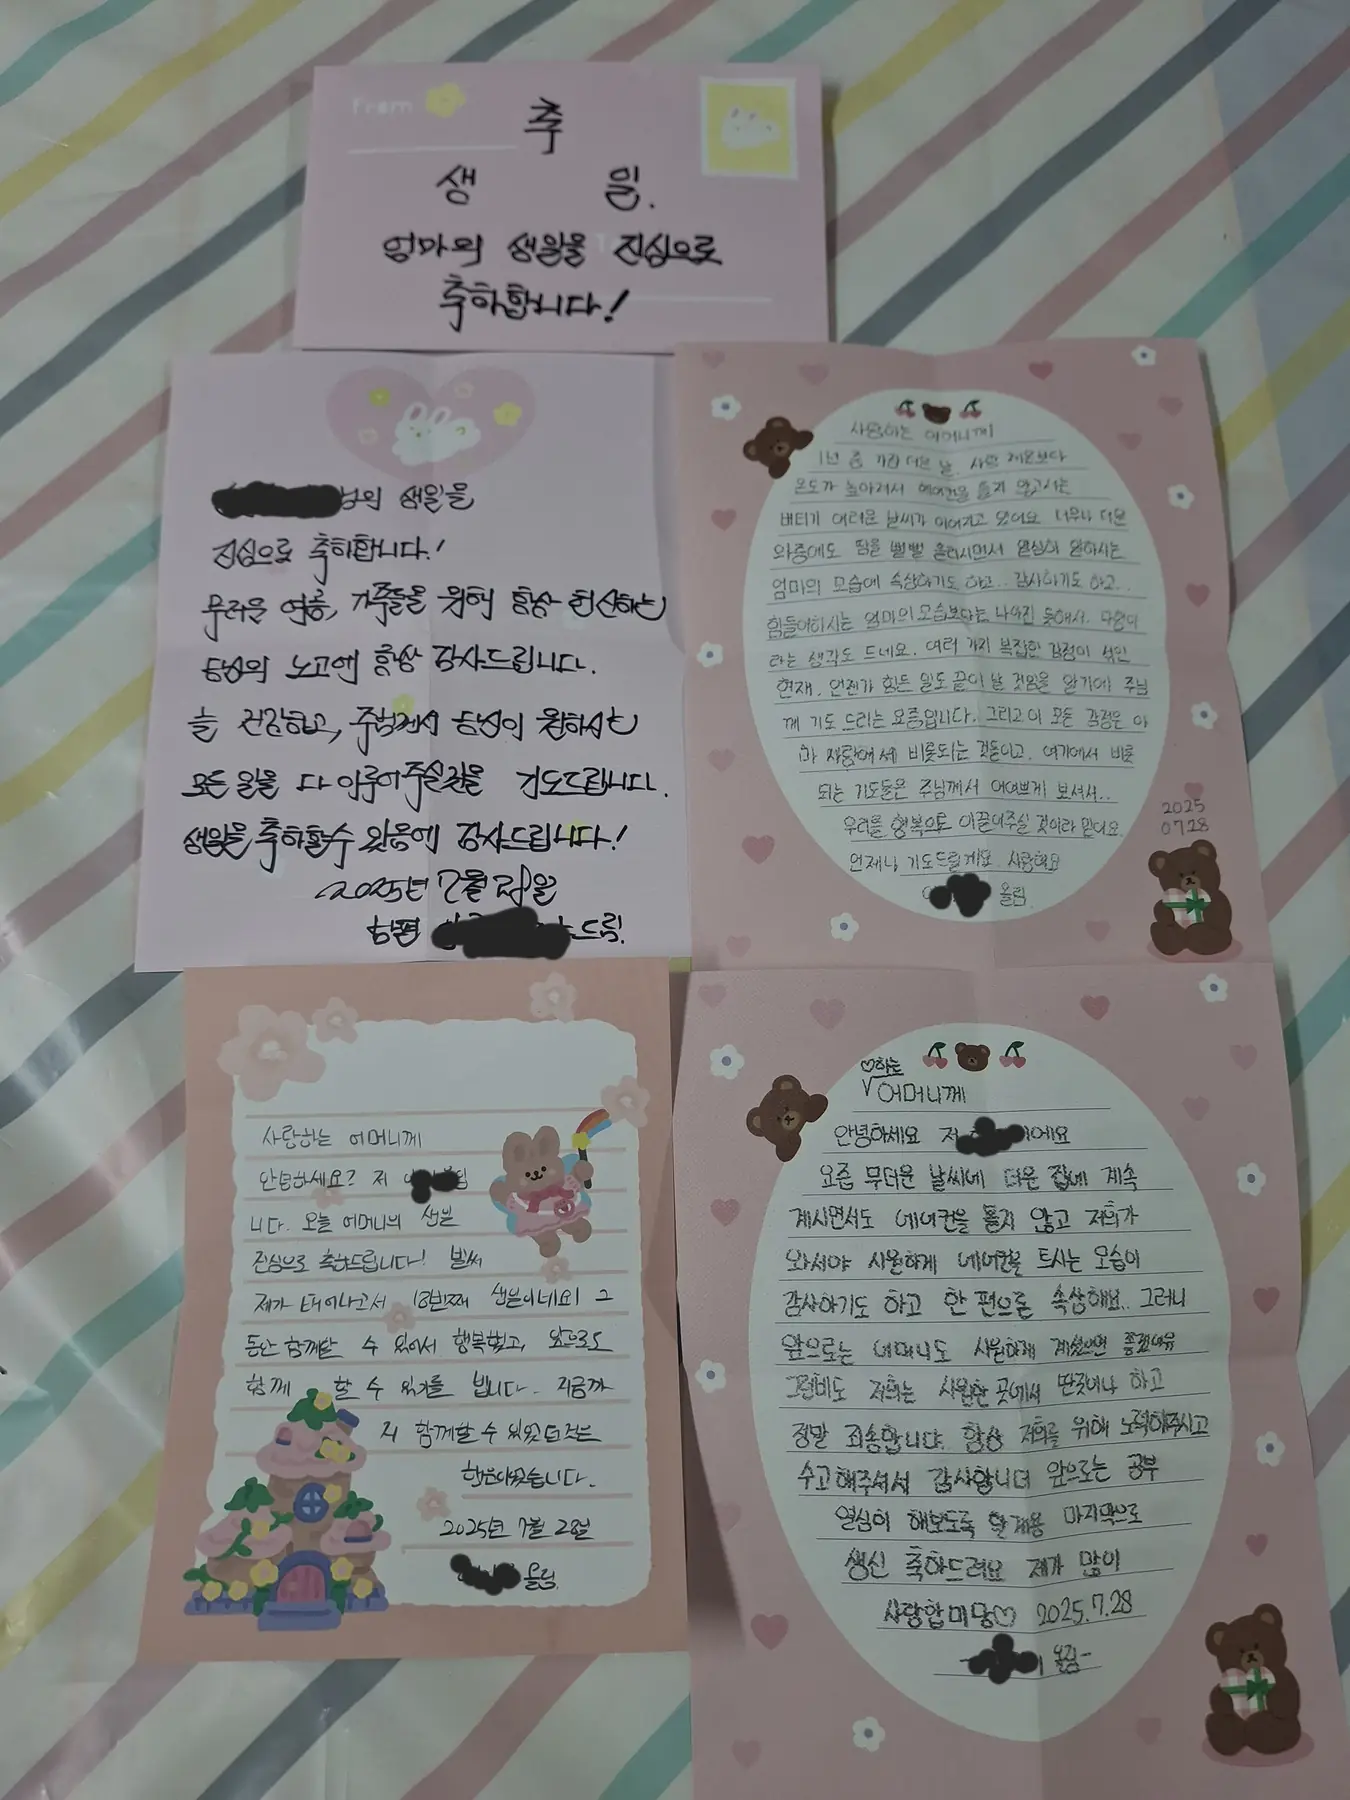 From
축
생 일.
엄마의 생일을 진심으로
축하합니다!
님의 생일을
진심으로 축하합니다!
무더운 여름, 가족들을 위해 항상 헌신하는
당신의 노고에 항상 감사드립니다.
늘 건강하고, 주님께서 당신이 원하시는
모든 일을 다 이루어주실것을 기도드립니다.
생일을 축하할수 있음에 감사드립니다!
2025년 7월 일
남편 드림.
사랑하는 어머니께
1년 중 가장 더운 날. 사람 체온보다
온도가 높아져서 에어컨을 틀지 않고서는
버티기 어려운 날씨가 이어지고 있어요. 너무나 더운
와중에도 땀을 뻘뻘 흘리시면서 열심히 일하시는
엄마의 모습에 속상하기도 하고.. 감사하기도 하고..
힘들어하시는 엄마의 모습보다는 나아진 듯해서. 다행이
라는 생각도 드네요. 여러 가지 복잡한 감정이 섞인
현재. 언젠가 힘든 일도 끝이 날 것임을 알기에 주님
께 기도 드리는 요즘입니다. 그리고 이 모든 감정은 아
마 사랑에서 비롯되는 것들이고. 여기에서 비롯
되는 기도들은 주님께서 어여쁘게 보셔서..
우리를 행복으로 이끌어주실 것이라 믿어요.
언제나 기도드릴게요. 사랑해요
올림
2025
0728
사랑하는 어머니께
안녕하세요? 저 입
니다. 오늘 어머니의 생일
진심으로 축하드립니다! 벌써
제가 태어나고서 13번째 생일이네요! 그
동안 함께할 수 있어서 행복했고, 앞으로도
함께 할 수 있기를 빕니다. 지금까
지 함께할 수 있었
2025년 7월 28일
올림.
♡하는
어머니께
안녕하세요 저 이에요
요즘 무더운 날씨에 더운 집에 계속
계시면서도 에어컨을 틀지 않고 저희가
와서야 시원하게 에어컨을 트시는 모습이
감사하기도 하고 한 편으론 속상해요.. 그러니
앞으로는 어머니도 시원하게 계셨으면 좋겠어유
그런데도 저희는 시원한 곳에서 딴짓이나 하고
정말 죄송합니다. 항상 저희를 위해 노력해주시고
수고해주셔서 감사합니더 앞으로는 공부
열심히 해보도록 할게용 마지막으로
생신 축하드려요 제가 많이
사랑합미당♡ 2025.7.28
올림-